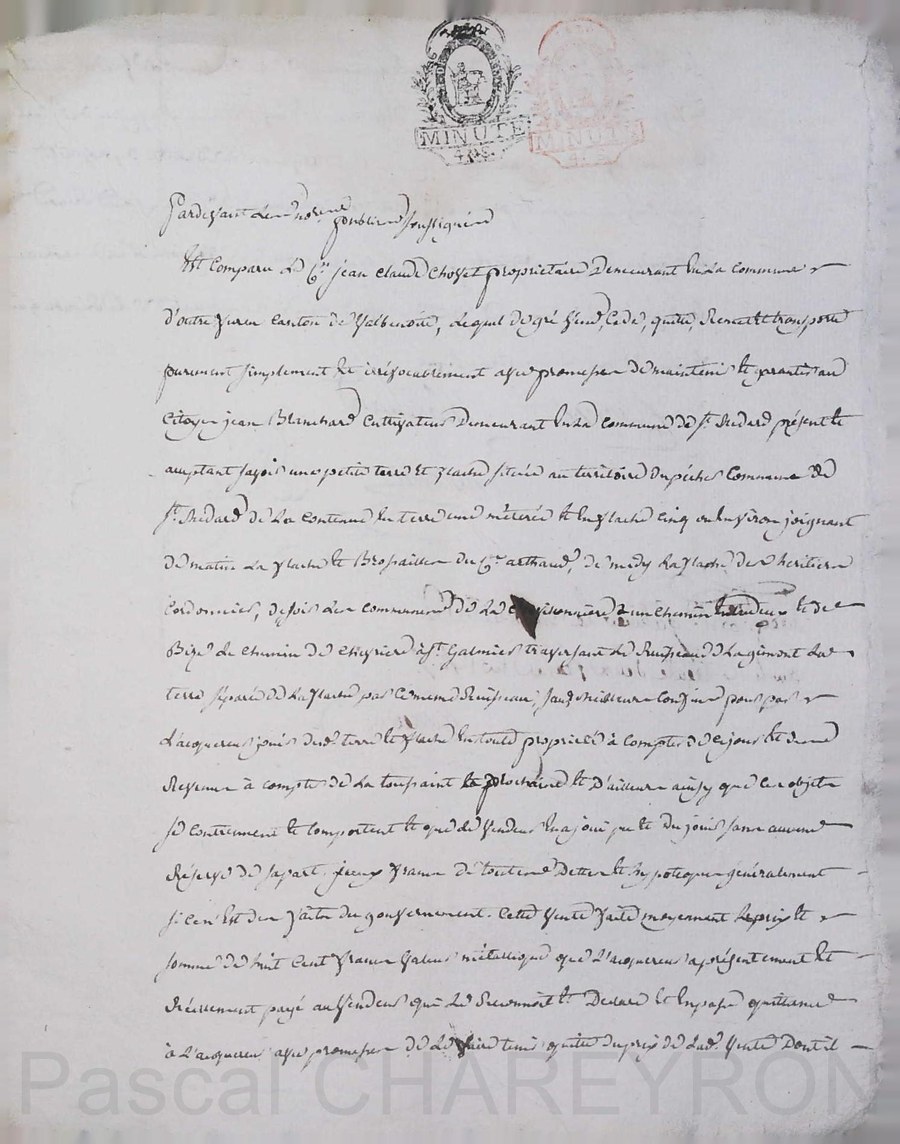 MINUTE
MINUTE
Pardevant les nores publics soussignés
Est Comparu Le Cen jean Claude Choset proprietaire Demeurant En La Commune
d'outre furen Canton de Valbenoite, Lequel de gré Vend, Cede, quitte, Remet Et transporte
purement simplement Et irrévocablement avec promesse de maintenir Et garantir au
Citoyen jean Blanchard Cultivateur Demeurant En La Commune de St Medard présent Et
acceptant savoir une petite terre Et flache située au territoire Commune de
St Medard de La Contenue En terre une méterée Et En flache Cinq ou Environ joignant
de matin La flache Et Brossailles du Cen arthaud, de midy La flache des heritiers
Cordonnier, de soir Les Communes de La un chemin Entredeux Et de
Bize Le Chemin de Cheyriere à St Galmier traversant Le Ruisseau de Lagimont La
terre séparée de La flache par Ce meme Ruisseau, sauf meilleurs Confins pour par
L'acquereur jouir desd. terre Et flache En toute proprieté à Compter de Ce jour Et de
Revenu à Compter de La toussaint prochaine Et D'ailleurs ainsy que Ces objets
se Contiennent Et Comportent Et que Le Vendeur En a joui pu Et du jouir sans aucune
Réserve de sa part. francs de toutes Dettes Et hypoteques généralement
si Ce n'Est des faits du gouvernement. Cette Vente faite moyennant Le prix Et
somme de huit Cent francs Valeur métallique que L'acquereur a présentement Et
Réellement payé au Vendeur qui Le Reconnoit Et Declare Et En passe quittance
à L'acquereur avec promesse de Le faire tenir quitte du prix de Lad. Vente Dont il
Pascal CHAREYRON